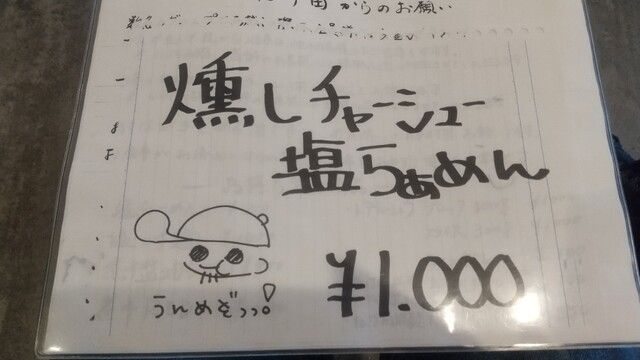 からのお願い
燻しチャーシュー
塩らぁめん
うんめぞっっ!
¥1.000